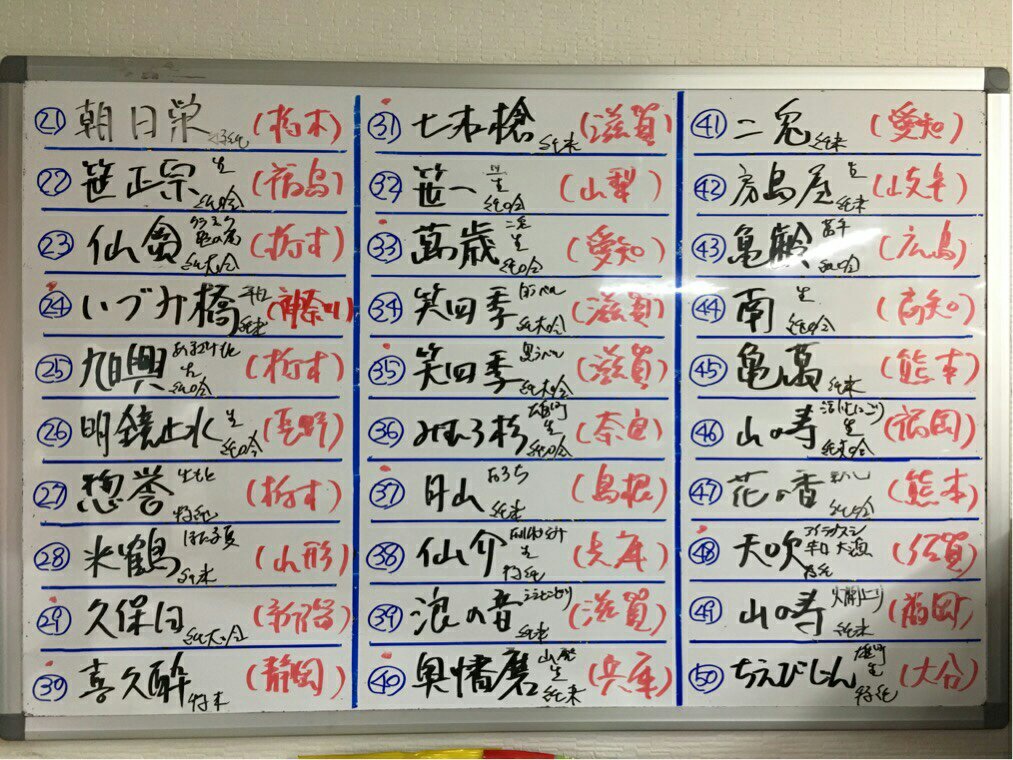 21 朝日栄 特純 (栃木)
22 笹正宗 生 純吟 (福島)
23 仙禽 純大吟 (栃木)
24 いづみ橋 純米 (神奈川)
25 旭興 生 純吟 (栃木)
26 明鏡止水 生 純吟 (長野)
27 惣誉 生もと 特純 (栃木)
28 米鶴 純米 (山形)
29 久保田 純大吟 (新潟)
30 喜久酔 特本 (静岡)
31 七本槍 純米 (滋賀)
32 笹一 生 純吟 (山梨)
33 萬歳 生 純吟 (愛知)
34 笑四季 純大吟 (滋賀)
35 笑四季 純大吟 (滋賀)
36 みむろ杉 雄町 生 純吟 (奈良)
37 月山 おろち 純米 (島根)
38 仙介 生 特純 (兵庫)
39 浪の音 純米 (滋賀)
40 奥播磨 山廃 生 純米 (兵庫)
41 二兎 純米 (愛知)
42 房島屋 生 純米 (岐阜)
43 亀齢 純吟 (広島)
44 南 生 純吟 (高知)
45 亀萬 純米 (熊本)
46 山の寿 活性にごり 生 純大吟 (福岡)
47 花の香 純吟 (熊本)
48 天吹 特純 (佐賀)
49 山の寿 純米 (福岡)
50 ちえびじん 雄町 生 特純 (大分)